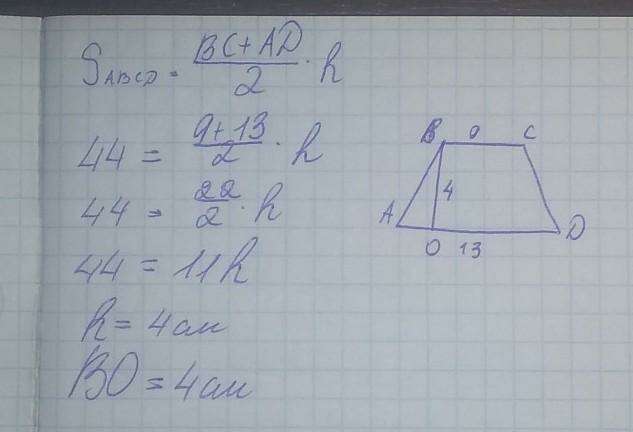 S_ABCD = (BC+AD)/2 · h
44 = (9+13)/2 · h
44 = 22/2 · h
44 = 11h
h = 4см
BO = 4см
B 9 C
4
A D
O 13